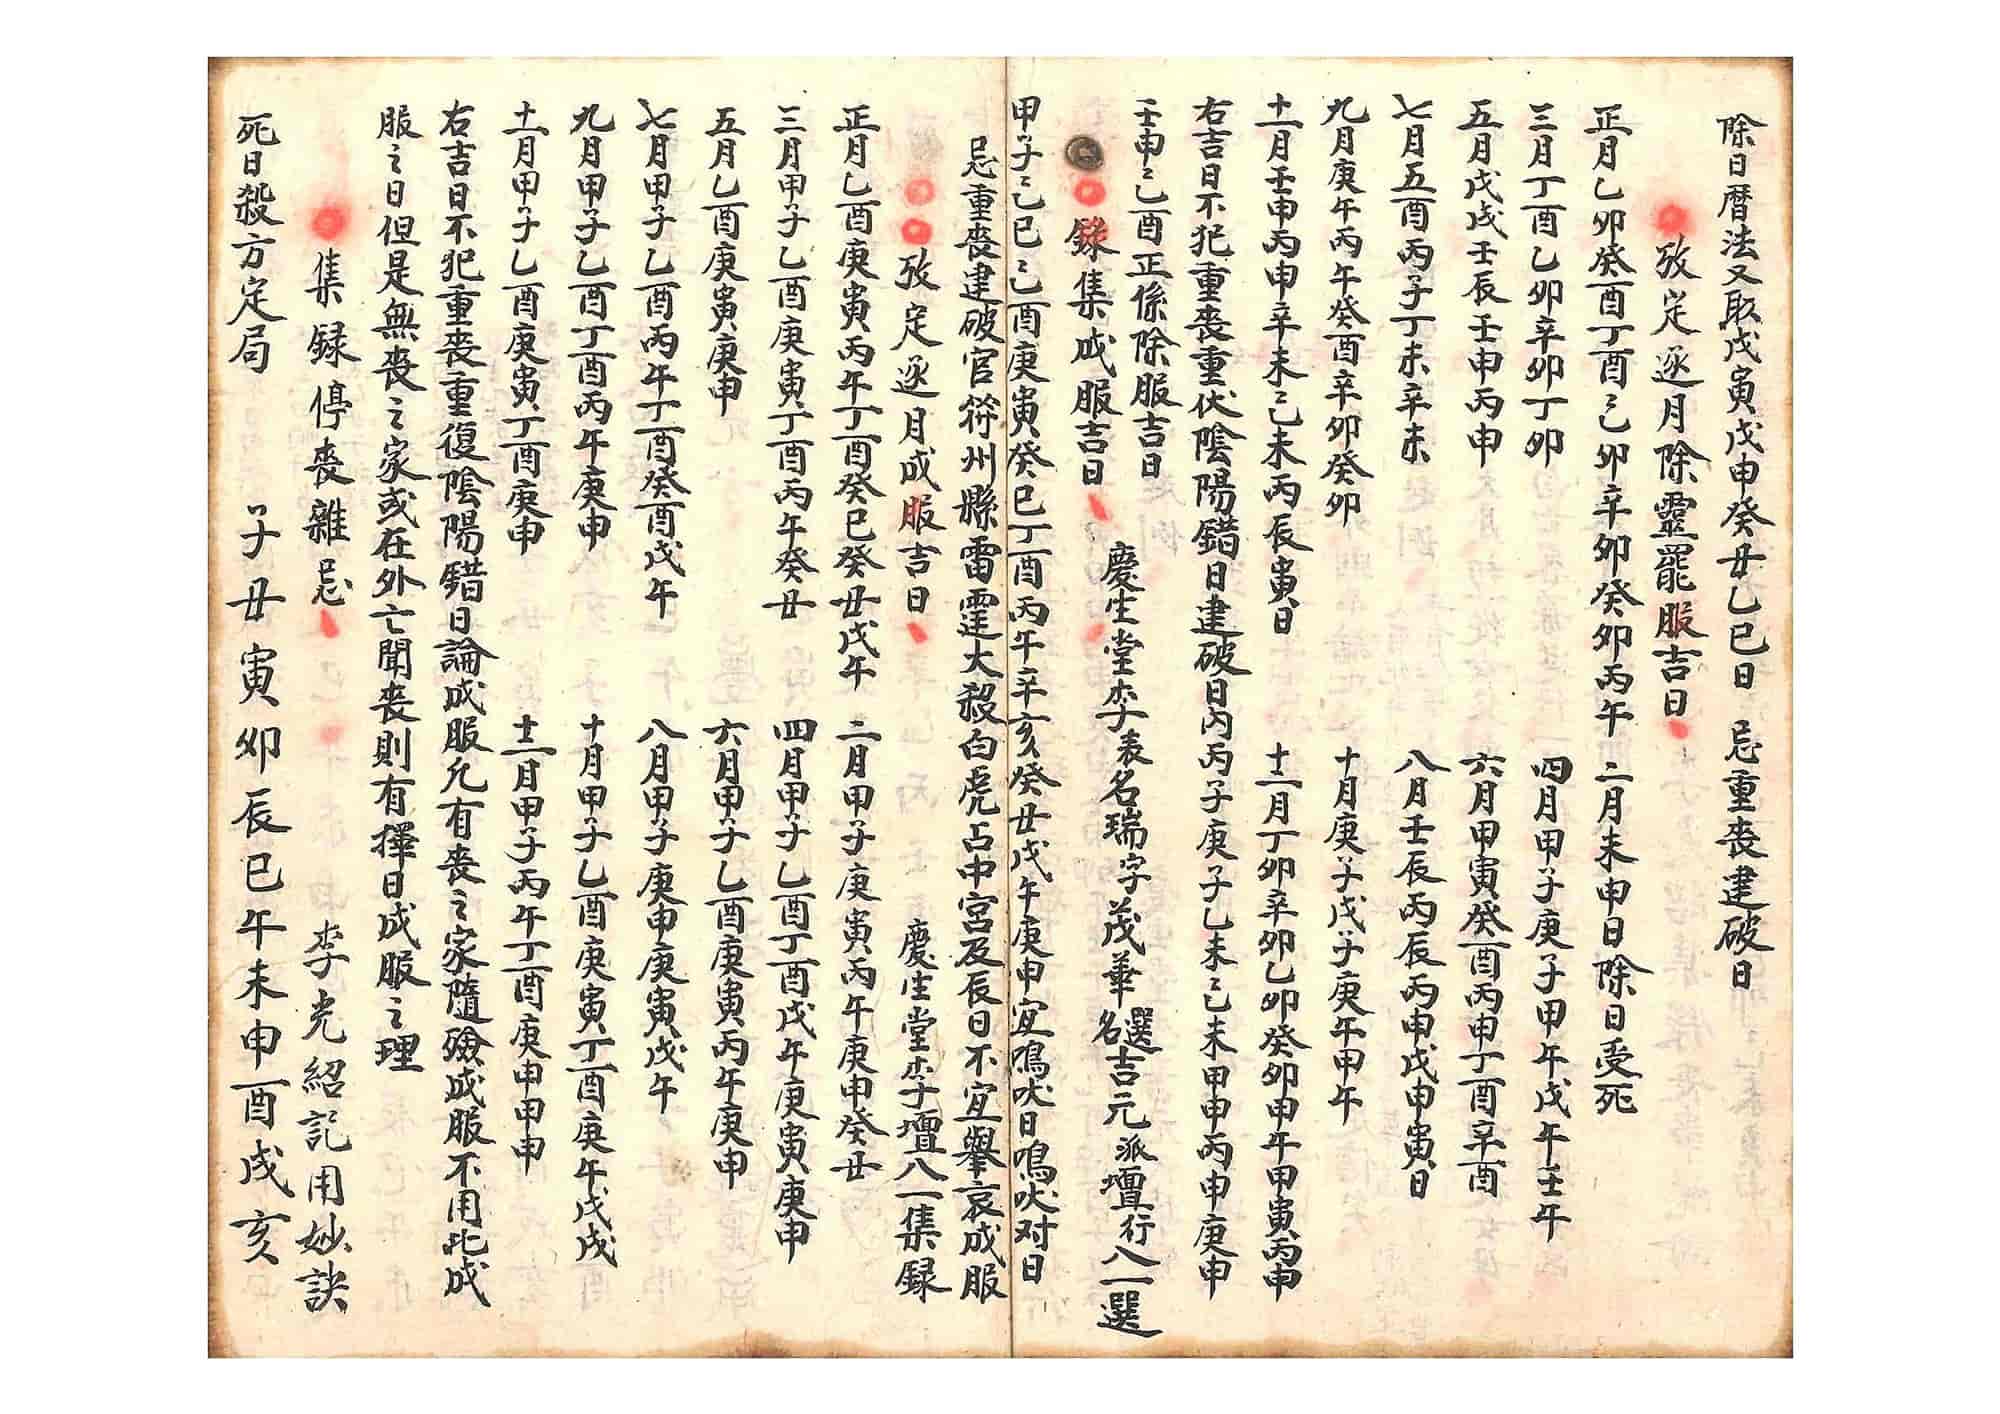 除日暦法又取戊寅戊申癸丑乙巳日　忌重喪建破日
攷定逐月除靈罷服吉日
正月乙卯癸酉丁酉己卯辛卯癸卯丙午　二月未申日除日受死
三月丁酉乙卯辛卯丁卯　四月甲子庚子甲午戊午壬午
五月戊戌壬辰壬申丙申　六月甲寅癸酉丙申丁酉辛酉
七月五酉丙子丁未辛未　八月壬辰丙辰丙申戊申寅日
九月庚午丙午癸酉辛卯癸卯　十月庚子戊子庚午甲午
十一月壬申丙申辛未己未丙辰寅日　十二月丁卯辛卯乙卯癸卯甲午甲寅丙申
右吉日不犯重喪重伏陰陽錯日建破日内丙子庚子乙未己未甲申丙申庚申
壬申己酉正係除服吉日
錄集成服吉日　慶生堂李表名瑞字茂華選名吉元派壇行八一選
甲子己巳己酉庚寅癸巳丁酉丙午辛亥癸丑戊午庚申宜鳴吠日鳴吠对日
忌重喪建破官符州縣雷霆大殺白虎占中宮及辰日不宜舉哀成服
攷定逐月成服吉日　慶生堂李壇八一集録
正月乙酉庚寅丙午丁酉癸巳癸丑戊午　二月甲子庚寅丙午庚申癸丑
三月甲子乙酉庚寅丁酉丙午癸丑　四月甲子乙酉丁酉戊午庚寅庚申
五月乙酉庚寅庚申　六月甲子乙酉庚寅丙午庚申
七月甲子乙酉丙午丁酉癸酉戊午　八月甲子庚申庚寅戊午
九月甲子乙酉丁酉丙午庚申　十月甲子乙酉庚寅丁酉庚午戊戌
十一月甲子乙酉庚寅丁酉庚申　十二月甲子丙午丁酉庚申甲申
右吉日不犯重喪重復陰陽錯日論成服凢有喪之家隨殮成服不用此成
服之日但是無喪之家或在外亡聞喪則有擇日成服之理
集録停喪雜忌　李光紹記用妙訣
死日殺方定局　子丑寅卯辰巳午未申酉戌亥